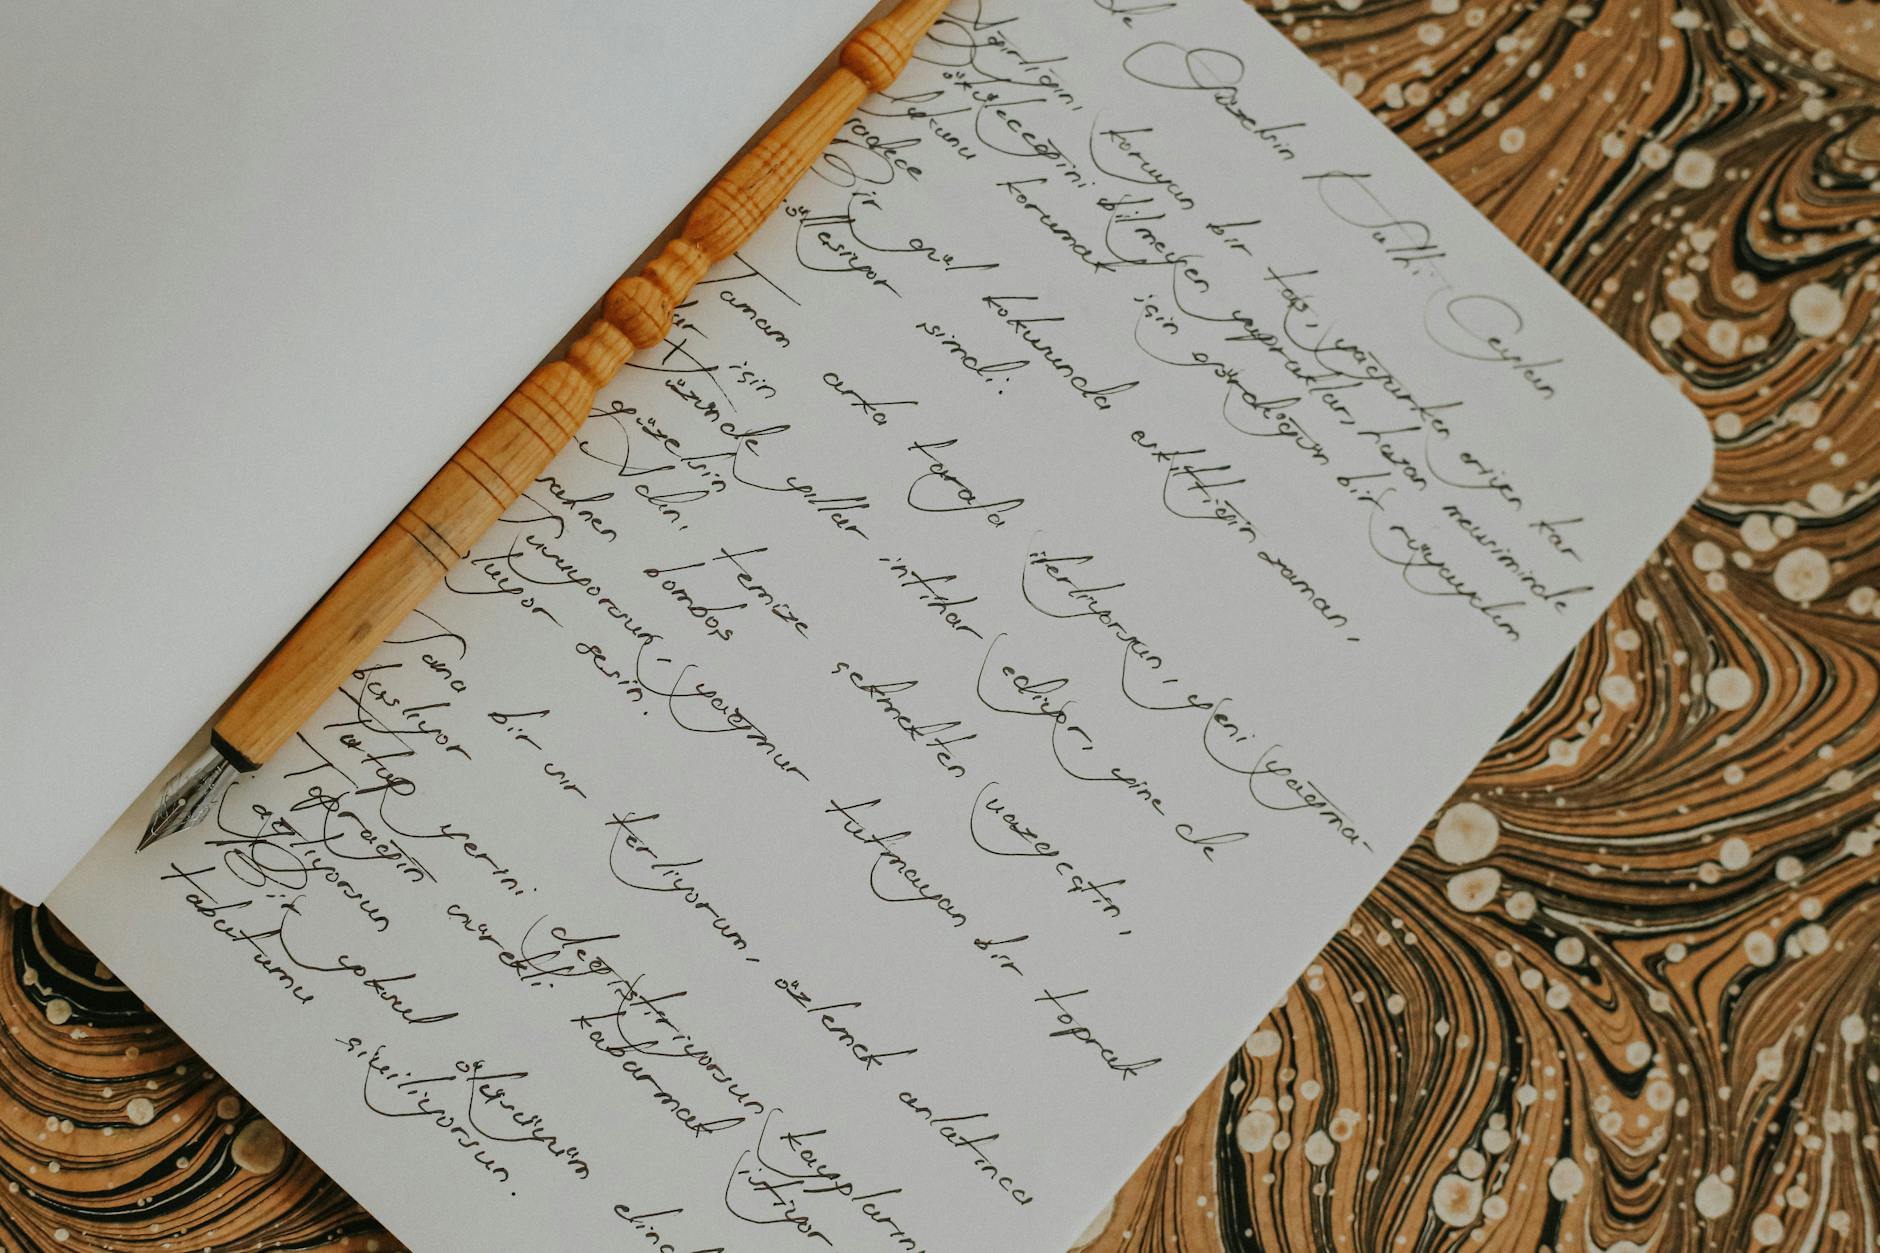 de Güzelsin Kuthi Ceylan
Ağırlığını koruyan bir taş, yağarken eriyen kar
döküleceğini bilmeyen yapraklar, hazan mevsiminde
uykunu korumak için gördüğün bir rüyaydım
sadece
Bir gül kokusunda arkittiğin zaman,
güllesiyor şimdi.
Tamam arka tarafa ilerliyorsun, yeni yağma-
lar için
yüzünde yıllar intihar ediyor, yine de
güzelsin
Adını temize çekmekten vazgeçtin,
zihnen bomboş
Sunuyorsun, yağmur tutmayan bir toprak
luyor sesin.
Sana bir sır terliyorum, özlemek anlatınca
başlıyor
Tutup yerini değiştiriyorsun kayıpların
Toprağın sürekli kabarmak istiyor
ağlıyorsun
Bir yoksul ölüsüyüm elinde
tabutumu çiviliyorsun.